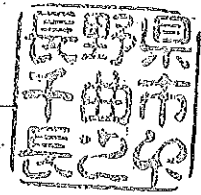 長野県
千曲市
長之印